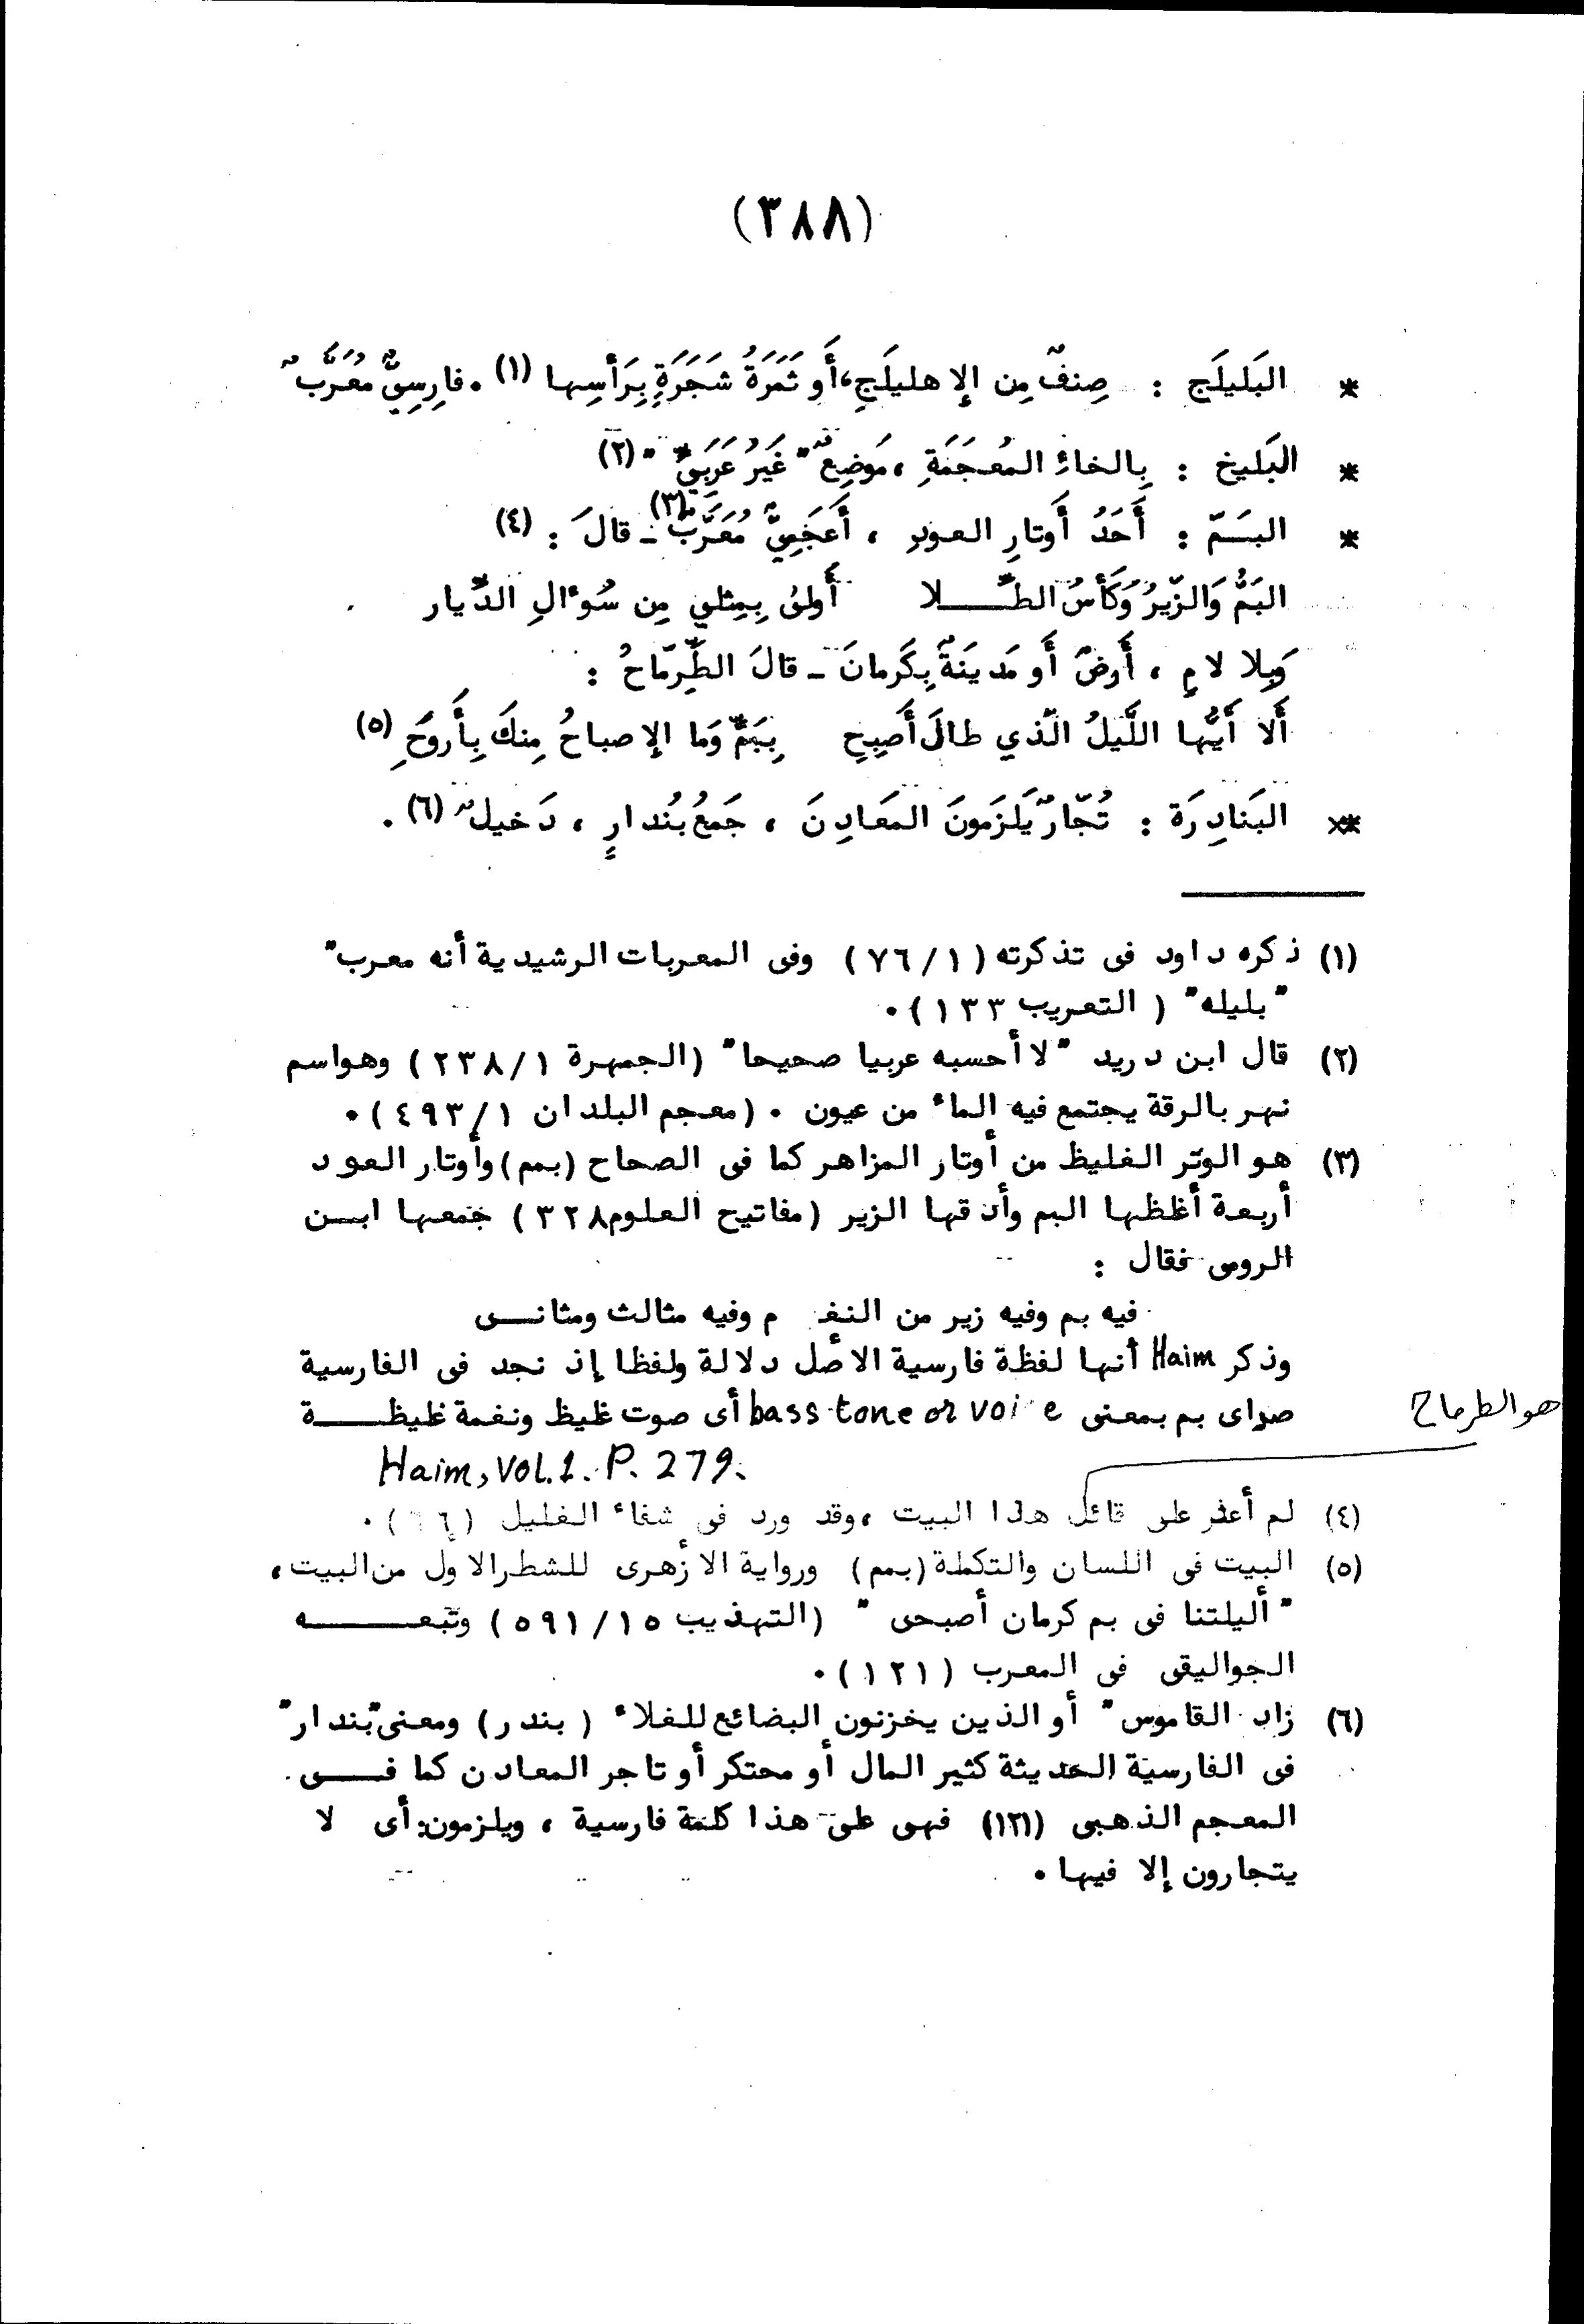 (٣٨٨)
* البَليلَج : صِنفٌ مِن الإهليلَجِ، أَو ثَمَرَةُ شَجَرَةٍ بِرَأسِها (١) . فارِسِيٌّ مُعَرَّبٌ
* البَليخ : بِالخاءِ المُعجَمَةِ ، مَوضِعٌ "غَيرُ عَرَبَيٍّ" (٢)
* البَـمّ : أَحَدُ أَوتارِ العودِ ، أَعجَمِيٌّ مُعَرَّبٌ (٣) ـ قالَ : (٤)
البَمُّ وَالزّيرُ وَكَأسُ الطـّـلا أَولىٰ بِمِثلي مِن سُؤالِ الدِّيار
وَبِلا لامٍ ، أَرضٌ أَو مَدينَةٌ بِكَرمانَ ـ قالَ الطِّرِمّاحُ :
أَلا أَيُّها اللَّيلُ الّذي طالَ أَصبِحِ بِبَمٍّ وَما الإصباحُ مِنكَ بِأَروَحِ (٥)
** البَنادِرَة : تُجّارٌ يَلزَمونَ المَعَادِنَ ، جَمعُ بُندارٍ ، دَخيلٌ (٦) .
(١) ذكره داود فى تذكرته (٧٦/١) وفى المعربات الرشيدية أنه معرب"
"بليله" (التعريب ١٣٣) .
(٢) قال ابن دريد "لا أحسبه عربيا صحيحا" (الجمهرة ٢٣٨/١) وهو اسم
نهر بالرقة يجتمع فيه الماء من عيون . (معجم البلدان ٤٩٣/١) .
(٣) هو الوتر الغليظ من أوتار المزاهر كما فى الصحاح (بمم) وأوتار العود
أربعة أغلظها البم وأدقها الزير (مفاتيح العلوم ٣٢٨) جمعها ابــن
الرومى فقال :
فيه بم وفيه زير من النغـ م وفيه مثالث ومثانــى
وذكر Haim أنها لفظة فارسية الأصل دلالة ولفظا إذ نجد فى الفارسية
صداى بم بمعنى bass tone or voi e أى صوت غليظ ونغمة غليظــة
Haim, Vol. 1. P. 279.
هو الطرماح
(٤) لم أعثر على قائل هذا البيت ، وقد ورد فى شفاء الغليل .
(٥) البيت فى اللسان والتكملة (بمم) ورواية الأزهرى للشطر الأول من البيت ،
"أليلتنا فى بم كرمان أصبحى" (التهذيب ٥٩١/١٥) وتبعــه
الجواليقى فى المعرب (١٢١) .
(٦) زاد القاموس" أو الذين يخزنون البضائع للغلاء (بندر) ومعنى "بندار"
فى الفارسية الحديثة كثير المال أو محتكر أو تاجر المعادن كما فــى
المعجم الذهبى (١٢١) فهى على هذا كلمة فارسية ، ويلزمون: أى لا
يتجارون إلا فيها .